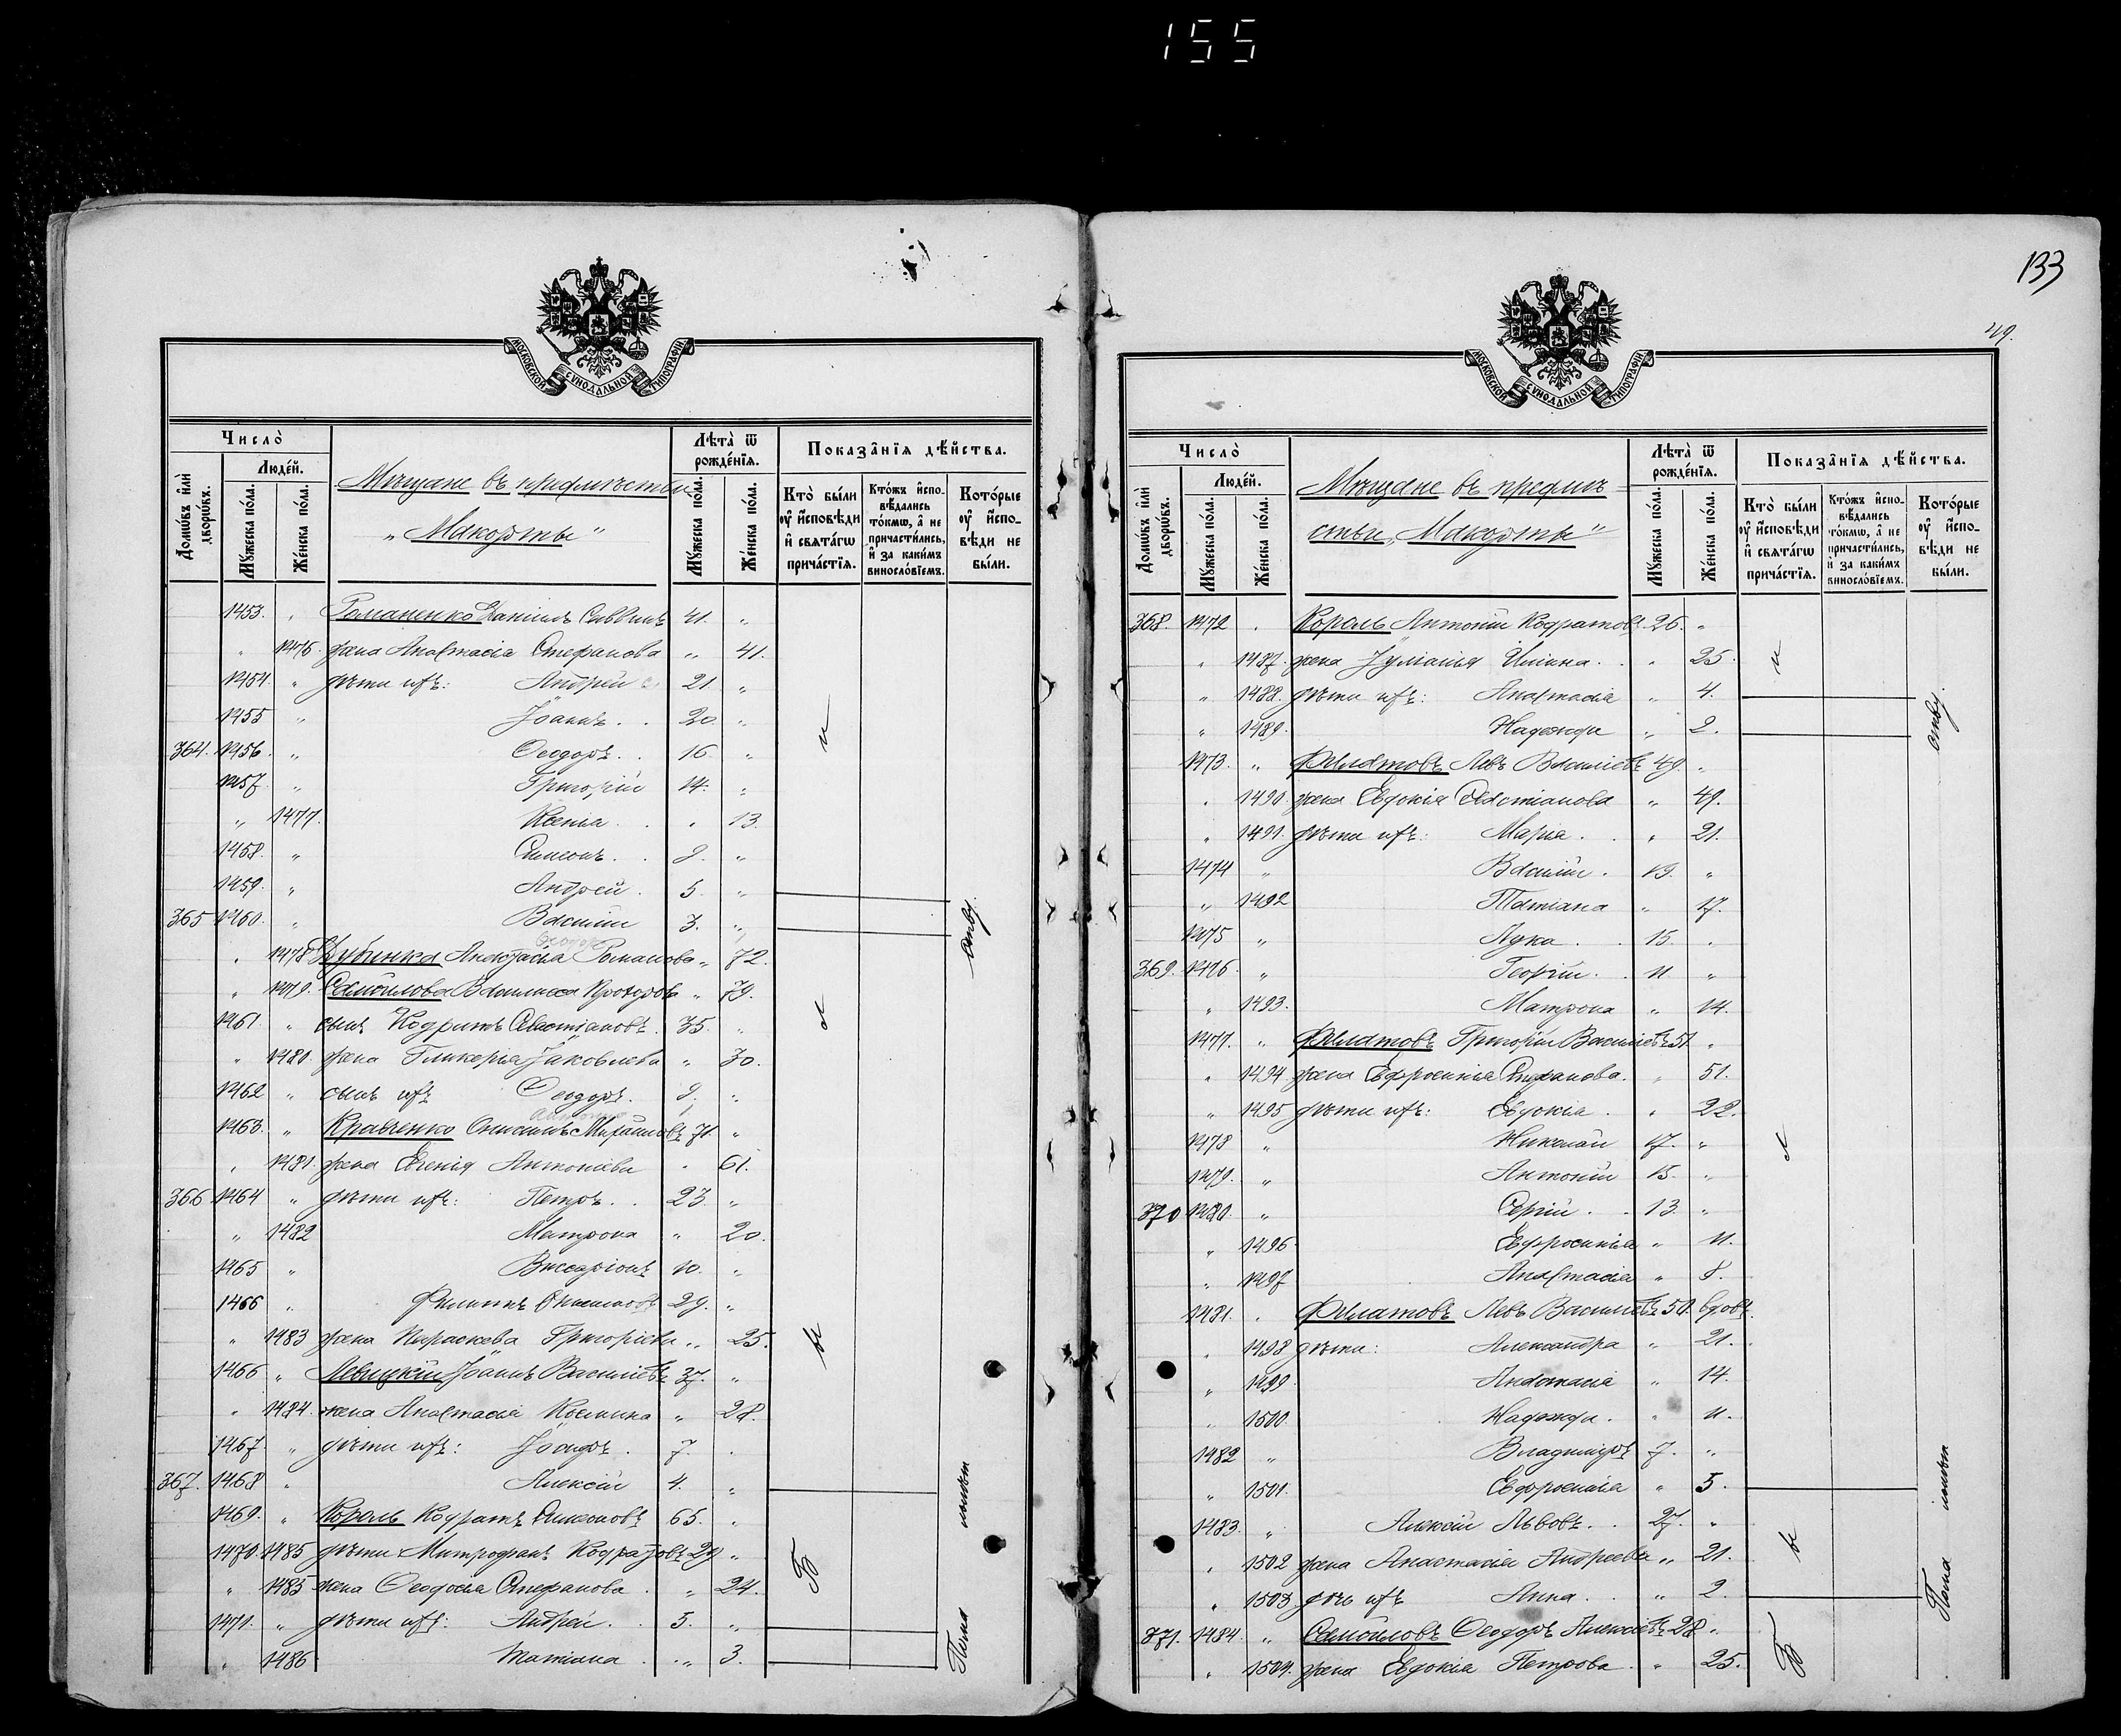 155
МОСКОВСКОЙ СѴНОДАЛЬНОЙ ТИПОГРАФІИ
Число̀
Людéй.
Домѡ́въ и҆лѝ дворѡ́въ.
Мꙋ́жеска по́ла.
Же́нска по́ла.
Мѣщане въ предмѣстьи
„Макорты“
Лѣта̀ ѿ рожде́нїѧ.
Мꙋ́жеска по́ла.
Же́нска по́ла.
Показа̑нїѧ дѣ́йства.
Кто̀ бы́ли ᲂу҆ и҆сповѣди и҆ свѧта́гѡ прича́стїѧ.
Кто́жъ и҆спо-вѣ́дались то́кмѡ, а҆ не причасти́лись, и҆ за каки́мъ виносло́вїемъ.
Кото́рые ᲂу҆ и҆спо-вѣди не бы́ли.
1453. „ Романенко Даніилъ Саввинъ 41. „
„ 1476. жена Анастасія Стефанова „ 41.
1454. „ дѣти ихъ: Андрей 21 „
1455 „ Іоаннъ. . 20. „
364. 1456. „ Ѳеодоръ. . 16 „
1457. „ Григорій 14. „
„ 1477. Ксенія . . „ 13.
1458. „ Симеонъ. . 9. „
1459. „ Андрей . 5. „
365 1460. „ Василій 3. „
„ 1478 Дубинка Анастасія Романова „ 72.
„ 1479. Самойлова Василисса Прохорова „ 79.
1461. „ сынъ Кодратъ Севастіановъ. 35. „
„ 1480. жена Гликерія Іаковлева „ 30.
1462 „ сынъ ихъ Ѳеодоръ. 9. „
1463. „ Кравченко Онисимъ 71. „
„ 1481. жена Евгенія Антоніева „ 61.
366 1464 „ дѣти ихъ: Петръ. . 23. „
„ 1482 Матрона „ 20.
1465 „ Виссаріонъ 10. „
1466 „ Филиппъ Онисимовъ 29. „
„ 1483 жена Параскева Григоріева „ 25.
1466 „ Левицкій Іоаннъ Василіевъ 37. „
„ 1484. жена Анастасія Космина „ 28.
1467. „ дѣти ихъ: 7. „
367. 1468 „ Алексій 4. „
1469. „ Король Кодратъ Симеоновъ 65. „
1470. 1485 дѣти Митрофанъ Кодратовъ 29 „
„ 1485 жена Ѳеодосія Стефанова . „ 24.
1471. „ дѣти ихъ: Андрей. . 5. „
„ 1486 Татіана . „ 3.
133
49.
МОСКОВСКОЙ СѴНОДАЛЬНОЙ ТИПОГРАФІИ
Число̀
Людéй.
Домѡ́въ и҆лѝ дворѡ́въ.
Мꙋ́жеска по́ла.
Же́нска по́ла.
Мѣщане въ предмѣ-
стьи „Макорты“
Лѣта̀ ѿ рожде́нїѧ.
Мꙋ́жеска по́ла.
Же́нска по́ла.
Показа̑нїѧ дѣ́йства.
Кто̀ бы́ли ᲂу҆ и҆сповѣди и҆ свѧта́гѡ прича́стїѧ.
Кто́жъ и҆спо-вѣ́дались то́кмѡ, а҆ не причасти́лись, и҆ за каки́мъ виносло́вїемъ.
Кото́рые ᲂу҆ и҆спо-вѣди не бы́ли.
368. 1472 . Король Антоній Кодратовъ. 26. „
„ 1487. жена Іуліанія Иліина. . „ 25.
„ 1488. дѣти ихъ: Анастасія „ 4.
„ 1489. Надежда „ 2.
1473. „ Филатовъ Левъ Василіевъ 49. „
„ 1490. жена Евдокія Севастіанова „ 49.
„ 1491. дѣти ихъ: Марія. . „ 21.
1474 „ Василій . 19. „
„ 1492 Татіана „ 17.
1475 „ Лука . . 15. „
369. 1476. „ Георгій. . 11 „
„ 1493. Матрона „ 14.
1477. „ Филатовъ Григорій Василіевъ 51. „
„ 1494. жена Евфросинія Стефанова. „ 51.
„ 1495 дѣти ихъ: Евдокія . „ 22.
1478 „ Николай 17. „
1479. „ Антоній 15. „
370 1480. „ Сергій . . 13. „
„ 1496. Евфросинія „ 11.
„ 1497 Анастасія „ 8.
1481. . Филатовъ Левъ Василіевъ 50. вдовъ.
„ 1498 дѣти: Александра „ 21.
„ 1499. Анастасія „ 14.
„ 1500. Надежда . „ 11.
1482 „ Владиміръ 7. „
„ 1501. Евфросинія „ 5.
1483. „ Алексій Львовъ. . 27. „
„ 1502 жена Анастасія Андреева „ 21.
„ 1503. дочь ихъ Анна. . „ 2.
371. 1484. „ Самойловъ Ѳеодоръ Алексіевъ 28 „
„ 1504. жена Евдокія Петрова . „ 25.